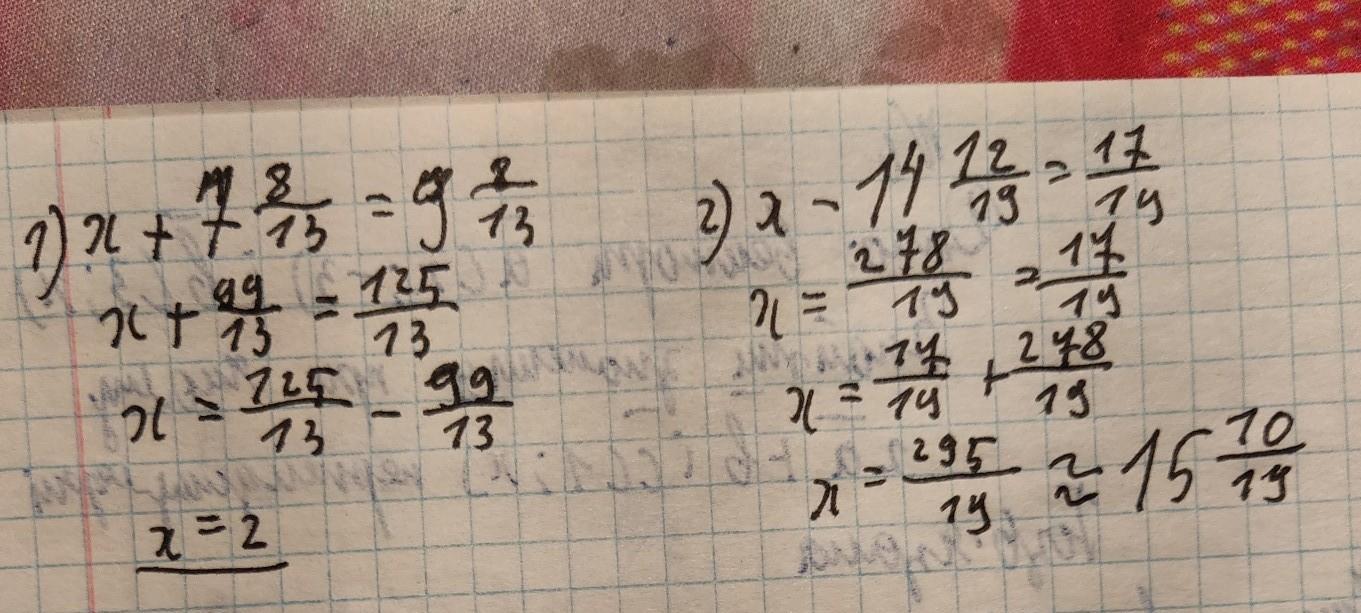 1) x + 7 8/13 = 9 8/13
x + 99/13 = 125/13
x = 125/13 - 99/13
x = 2
2) x - 14 12/19 = 17/19
x = 278/19 = 17/19
x = 17/19 + 278/19
x = 295/19 ≈ 15 10/19